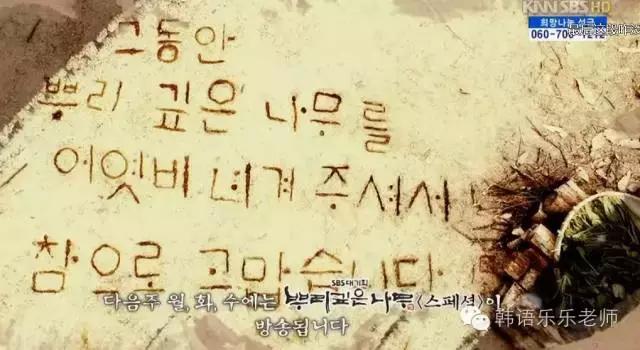 KNN SBS HD
희망나눔 성금
그동안
뿌리 깊은 나무를
어엿비 녀겨 주셔서
참으로 고맙습니다
SBS 대기획
다음주 월, 화, 수에는 뿌리깊은나무〈스페셜〉이
방송됩니다
韩语乐乐老师